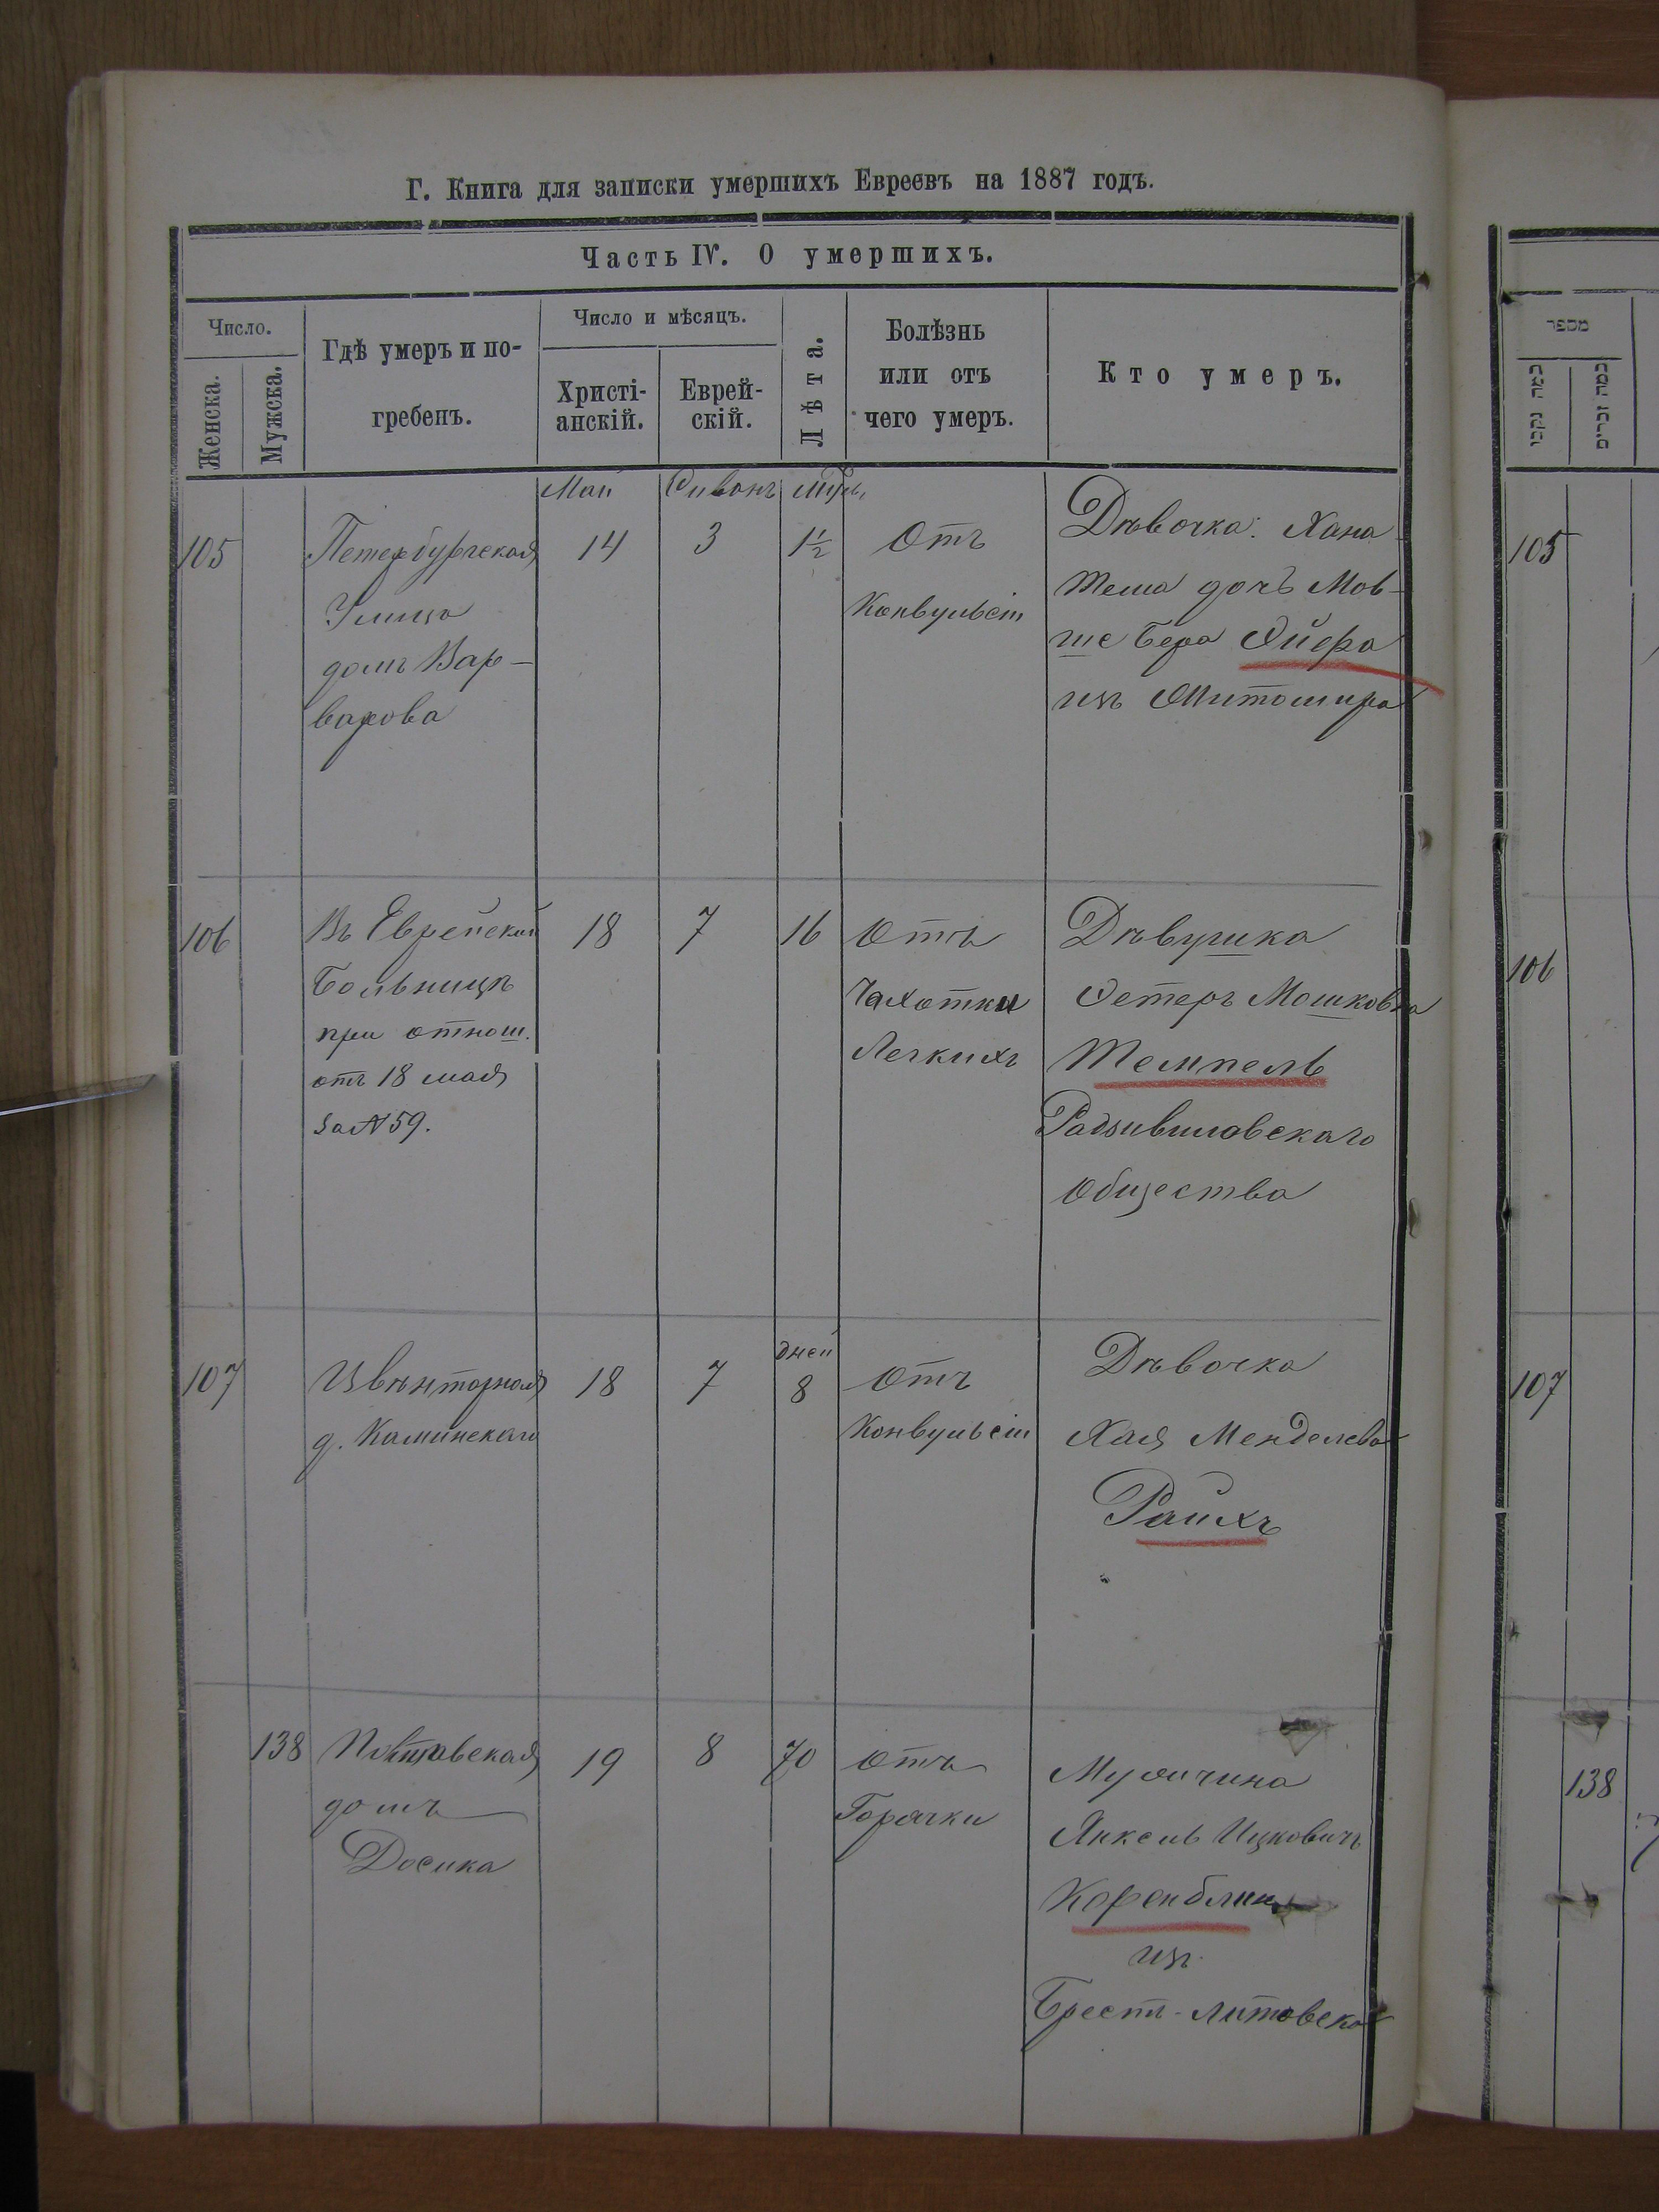 Г. Книга для записки умершихъ Евреевъ на 1887 годъ.
Часть IV. О умершихъ.
Число.
Женска.
Мужска.
Гдѣ умеръ и по-
гребенъ.
Число и мѣсяцъ.
Христі-
анскій.
Еврей-
скій.
Лѣта.
Болѣзнь
или отъ
чего умеръ.
Кто умеръ.
Май
Сиванъ
105
Петербургская
Улица
домъ Вар-
варова
14
3
1½
Отъ
Конвульсіи
Дѣвочка: Хана
Тема дочь Мов-
ше Бера Ойера
изъ Житомира
106
Въ Еврейской
Больницѣ
при отнош.
отъ 18 мая
за N 59.
18
7
16
Отъ
Чахотки
Легкихъ
Дѣвушка
Эстеръ Мошковна
Темпель
Радзивиловскаго
Общества
107
д. Каминскаго
18
7
дней
8
Отъ
Конвульсіи
Дѣвочка
Хая Менделева
Райхъ
138
Полтавская
домъ
Досика
19
8
70
Отъ
Горячки
Мужчина
Янкель Ицковичъ
Коренблит
изъ
Брестъ-Литовска
מספר
105
106
107
138